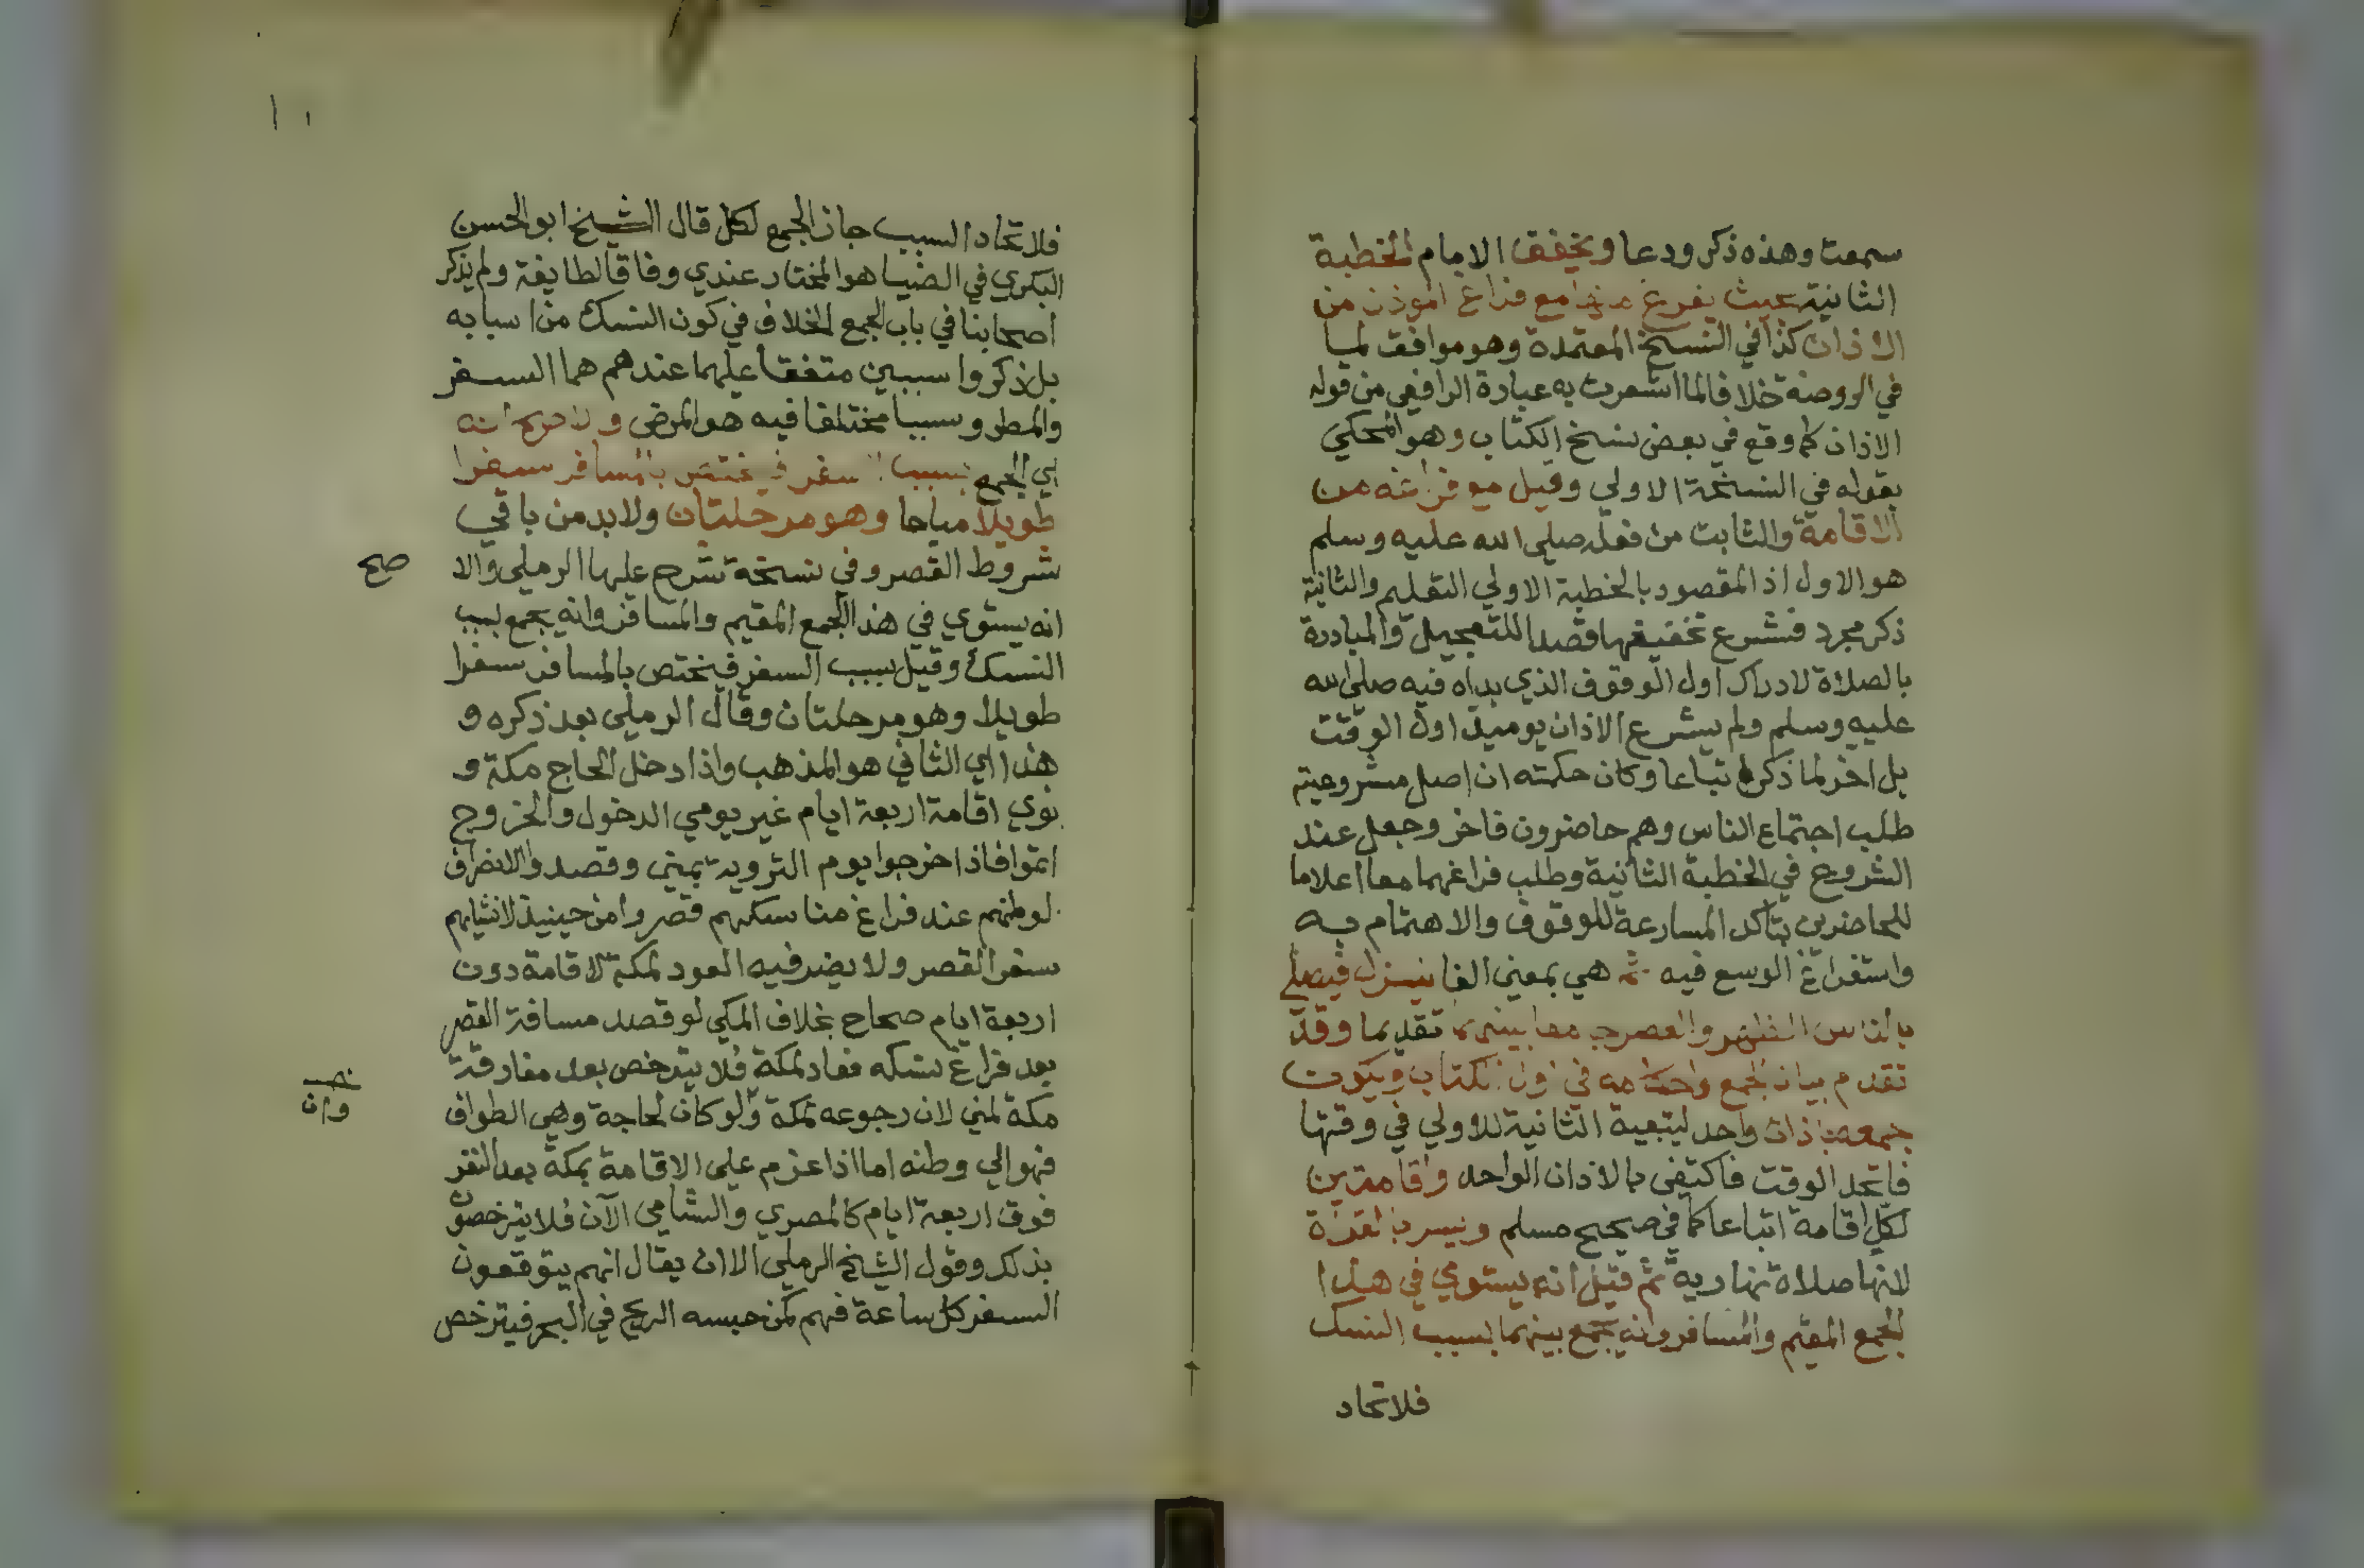 سمعت وهذه ذكر ودعا ويخفف الامام الخطبة
الثانية بحيث يفرغ منها مع فراغ الموذن من
الاذان كذا في النسخ المعتمدة وهو موافق لما
في الروضة خلافا لما اشعرت به عبارة الرافعي من قوله
الاذان كما وقع في بعض نسخ الكتاب وهو المحكي
بقوله في النسخة الاولي وقيل مع فراغه من
الاقامة والثابت من فعله صلي الله عليه وسلم
هو الاول اذ المقصود بالخطبة الاولي التعليم والثانية
ذكر مجرد فشرع تخفيفها قصدا للتعجيل والمبادرة
بالصلاة لادراك اول الوقوف الذي بداه فيه صلي الله
عليه وسلم ولم يشرع الاذان يوميذ اول الوقت
بل اخر لما ذكر اتباعا وكان حكمته ان اصل مشروعيته
طلب اجتماع الناس وهم حاضرون فاخر وجعل عند
الشروع في الخطبة الثانية وطلب فراغهما معا اعلاما
للحاضرين بتاكد المسارعة للوقوف والاهتمام به
واستفراغ الوسع فيه ثم هي بمعني الفا ينزل فيصلي
بالناس الظهر والعصر جمعا بينهما تقديما وقد
تقدم بيان الجمع واحكامه في اول الكتاب ويكون
جمعه باذان واحد لتبعية الثانية للاولي في وقتها
فاتحد الوقت فاكتفي بالاذان الواحد واقامتين
لكل اقامة اتباعا كما في صحيح مسلم ويسر بالقراة
لانها صلاة نهارية ثم قيل انه يستوي في هذا
الجمع المقيم والمسافر وانه يجمع بينهما بسبب النسك
فلاتحاد
١١
فلاتحاد السبب جاز الجمع لكل قال الشيخ ابو الحسن
البكري في الضيا هو المختار عندي وفاقا لطايفة ولم يذكر
اصحابنا في باب الجمع الخلاف في كون النسك من اسبابه
بل ذكروا سببين متفقا عليهما عندهم هما السفر
والمطر وسببا مختلفا فيه هو المرض والاصح انه
اي الجمع بسبب السفر فيختص بالمسافر سفرا
طويلا مباحا وهو مرحلتان ولا بد من باقي
شروط القصر وفي نسخة شرح عليها الرملي والا
صح
انه يستوي في هذا الجمع المقيم والمسافر وانه يجمع بسبب
النسك وقيل بسبب السفر فيختص بالمسافر سفرا
طويلا وهو مرحلتان وقال الرملي بعد ذكره و
هذا اي الثاني هو المذهب واذا دخل الحاج مكة و
نوي اقامة اربعة ايام غير يومي الدخول والخروج
اتموا فاذا خرجوا يوم التروية بمني وقصدوا الانصراف
لوطنهم عند فراغ مناسكهم قصروا من حينيذ لانشايهم
سفر القصر ولا يضر فيه العود لمكة لاقامة دون
اربعة ايام صحاح بخلاف المكي لو قصد مسافة القصر
بعد فراغ نسكه فعاد لمكة فلا يترخص بعد مفارقة
مكة لمني لان رجوعه لمكة ولو كان لحاجة وهي الطواف
وان
فهو الي وطنه اما اذا عزم علي الاقامة بمكة بعد النفر
فوق اربعة ايام كالمصري والشامي الآن فلا يترخصون
بذلك وقول الشيخ الرملي الا ان يقال انهم يتوقعون
السفر كل ساعة فهم كمن حبسه الريح في البحر فيترخص